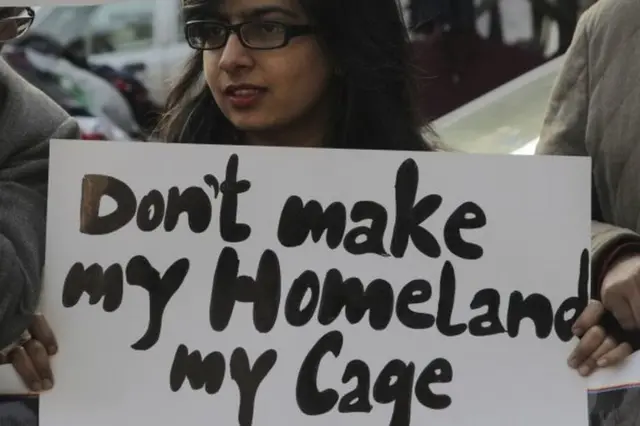 Don't make
my Homeland
my Cage